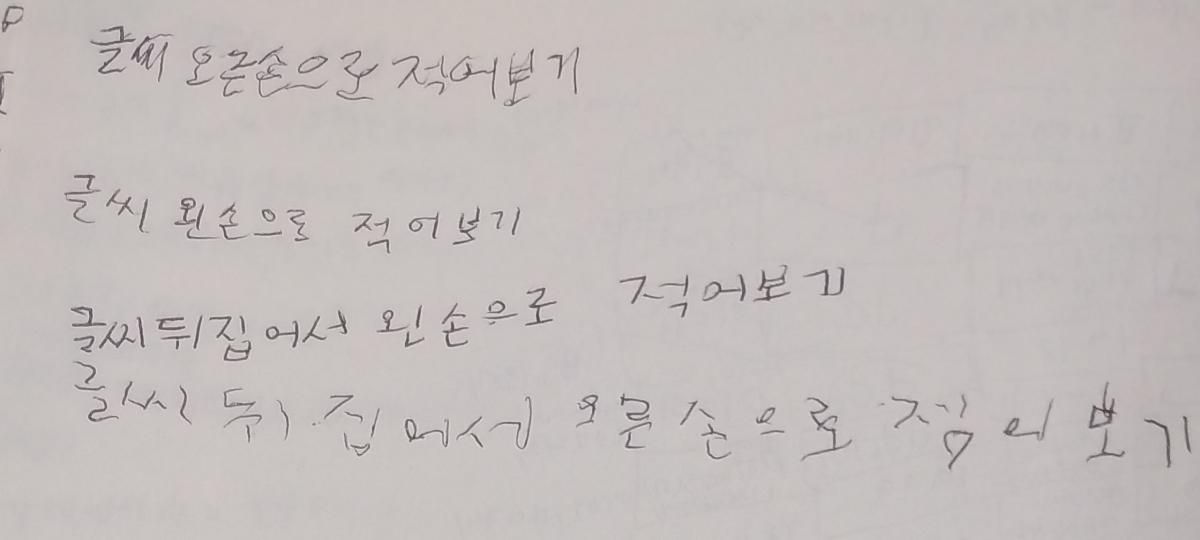 글씨 오른손으로 적어보기
글씨 왼손으로 적어보기
글씨 뒤집어서 왼손으로 적어보기
글씨 뒤집에서 오른손으로 보기